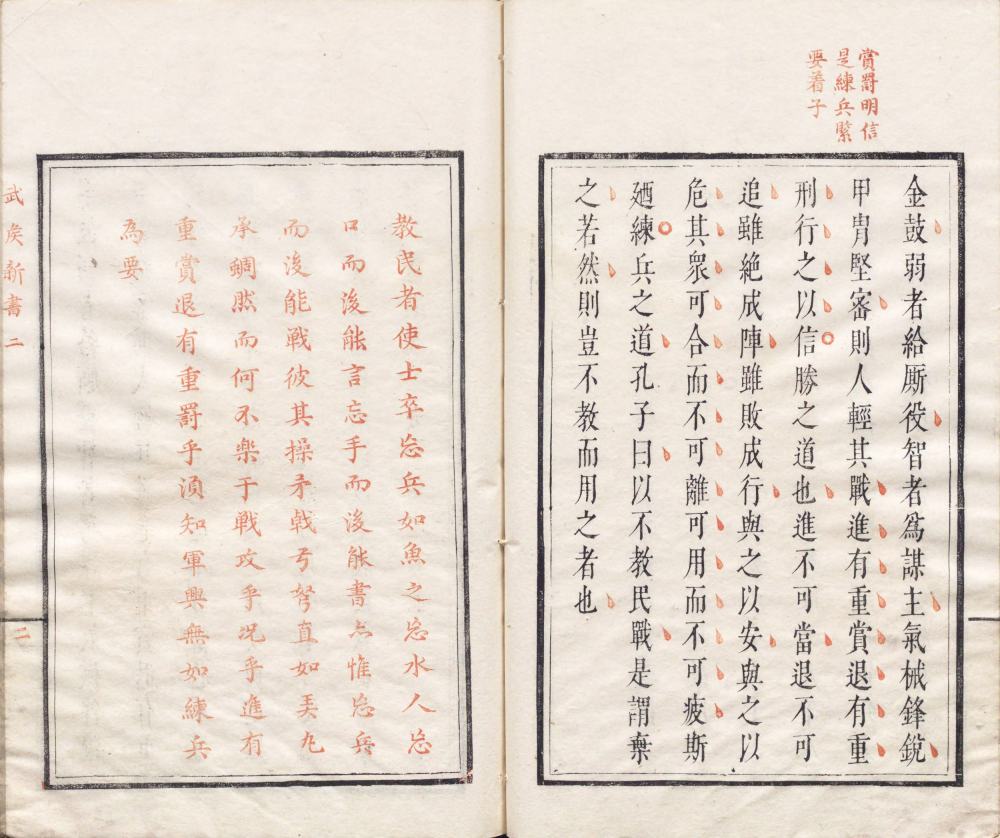 賞罰明信
是練兵緊
要着子
金鼓弱者給厮役智者爲謀主氣械鋒銳
甲胄堅審則人輕其戰進有重賞退有重
刑行之以信勝之道也進不可當退不可
追雖絕成陣雖敗成行與之以安與之以
危其衆可合而不可離可用而不可疲斯
廼練兵之道孔子曰以不教民戰是謂棄
之若然則豈不教而用之者也
教民者使士卒忘兵如魚之忘水人忘
口而後能言忘手而後能書亦惟忘兵
而後能戰彼其操矛戟弓弩直如弄丸
承蜩然而何不樂于戰攻乎况乎進有
重賞退有重罰乎須知軍興無如練兵
為要
武矦新書二
二